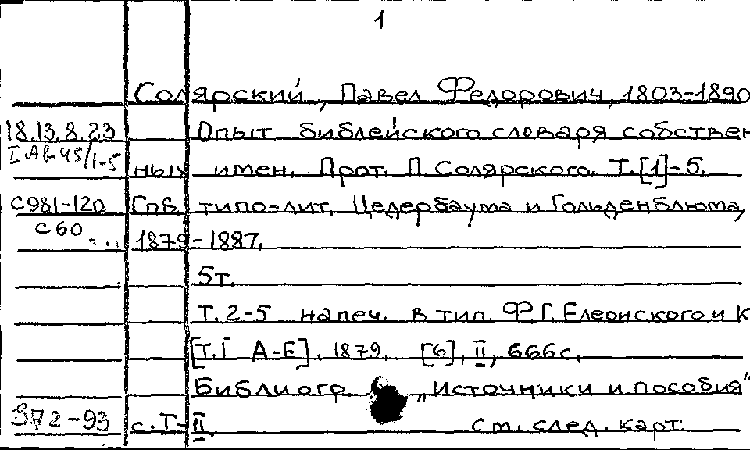 1
Солярский, Павел Федорович, 1803-1890
18.13.8.23 Опыт библейского словаря собствен
I АВ-45/1-5 ных имен. Прот. П. Солярского. Т.[1]-5.
С981-120 Спв. типо-лит. Цедербаума и Гольденблюма,
С60 1879-1887.
5т.
Т. 2-5 напеч. в тип. Ф.Г. Елеонского и К
[Т.I А-Е]. 1879. [6], II, 666с.
Библиогр. „Источники и пособия"
372-93 с. I-II. См. след. карт.